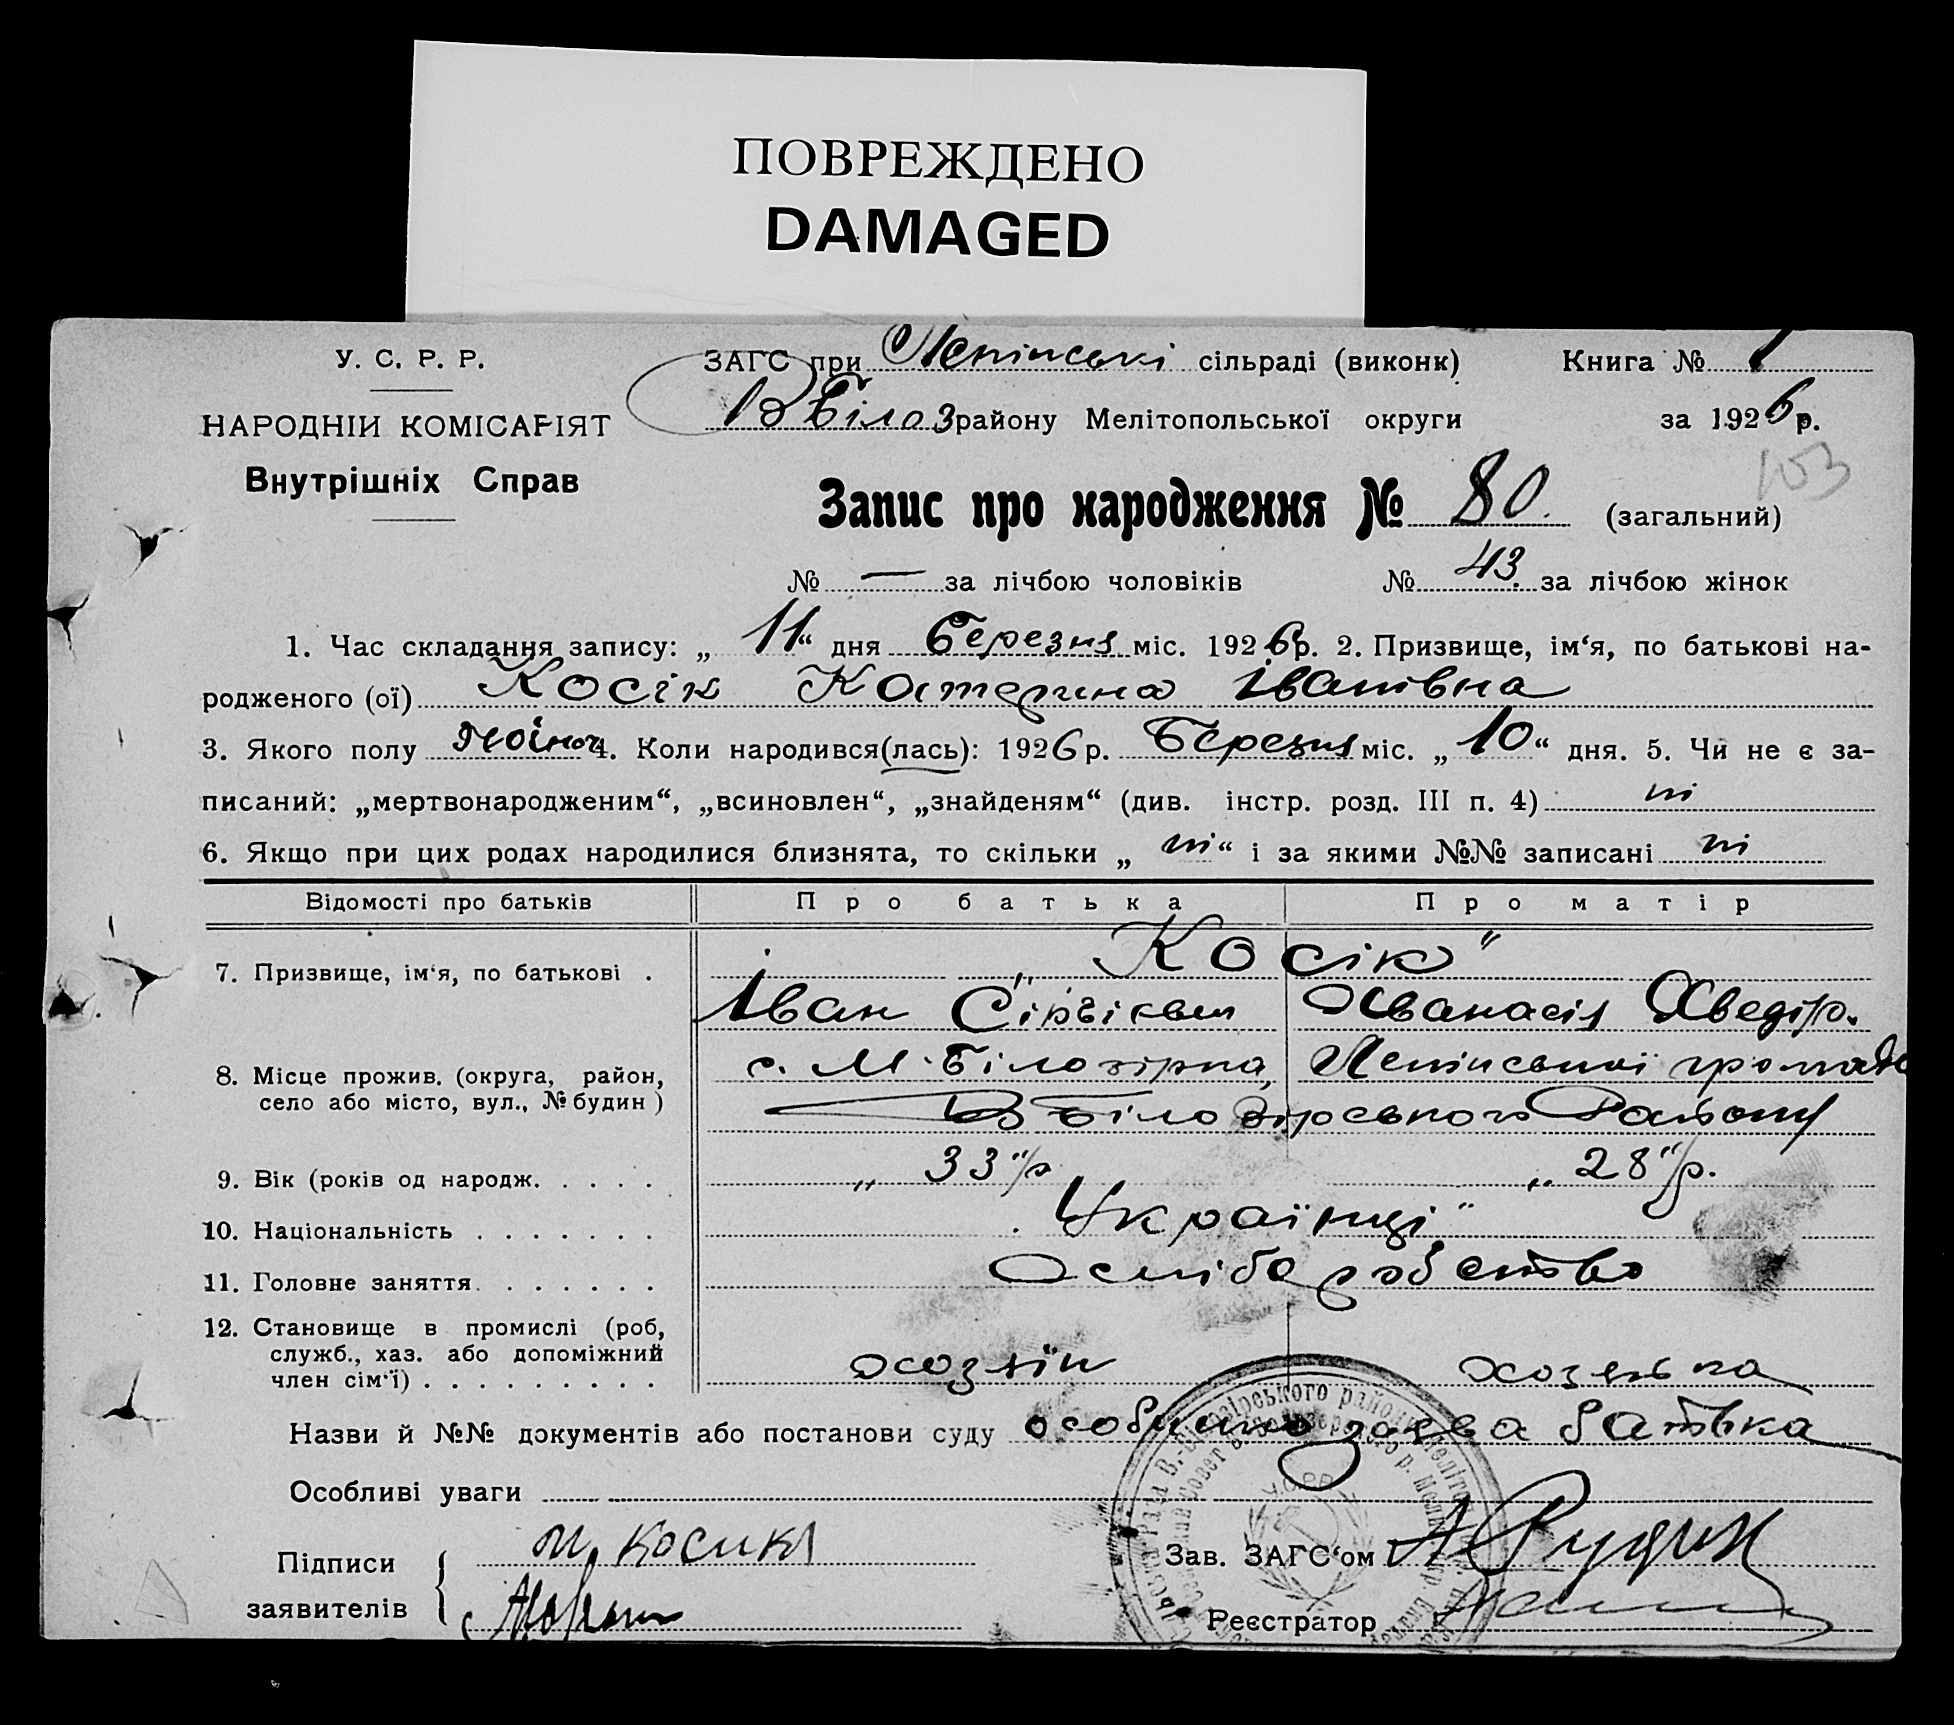 ПОВРЕЖДЕНО
DAMAGED
У. С. Р. Р.
ЗАГС при Ленінські сільраді (виконк)
Книга № 1
НАРОДНІЙ КОМІСАРІЯТ
В Білоз району Мелітопольської округи
за 1926 р.
Внутрішніх Справ
153
Запис про народження № 80. (загальний)
№ — за лічбою чоловіків № 43. за лічбою жінок
1. Час складання запису: „11“ дня Березня міс. 1926 р. 2. Призвище, ім‘я, по батькові на-
родженого (ої) Косік Катерина Іванівна
3. Якого полу жіноч 4. Коли народився(лась): 1926 р. Березня міс. „10“ дня. 5. Чи не є за-
писаний: „мертвонародженим“, „всиновлен“, „знайденям“ (див. інстр. розд. III п. 4) ні
6. Якщо при цих родах народилися близнята, то скільки „ні“ і за якими №№ записані ні
Відомості про батьків Про батька Про матір
7. Призвище, ім‘я, по батькові . „Косік“
Іван Сіргієвич
8. Місце прожив. (округа, район, с. М. Білозірка, Ленінської громади
село або місто, вул., № будин ) В Білозірського Району
9. Вік (років од народж. . . . . „33“ р „28“ р.
10. Національність . . . . . . . Українці“
11. Головне заняття . . . . . . . Хліборобство
12. Становище в промислі (роб,
служб., хаз. або допоміжний
член сім‘ї) . . . . . . . . . хозяїн хозяйка
Назви й №№ документів або постанови суду особиста заява батька
Особливі уваги
Підписи
заявителів
Косика
Зав. ЗАГС‘ом
Реєстратор
У.С.Р.Р.